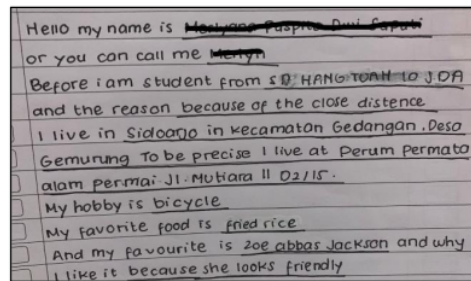 Hello my name is
or you can call me
Before i am student from SD HANG TUAH 10 JDA
and the reason because of the close distence
I live in Sidoarjo in kecamatan Gedangan. Desa
Gemurung To be precise I live at Perum Permata
alam permai. Jl. Mutiara II 02/15.
My hobby is bicycle
My favorite food is fried rice
And my favourite is zoe abbas jackson and why
I like it because she looks friendly